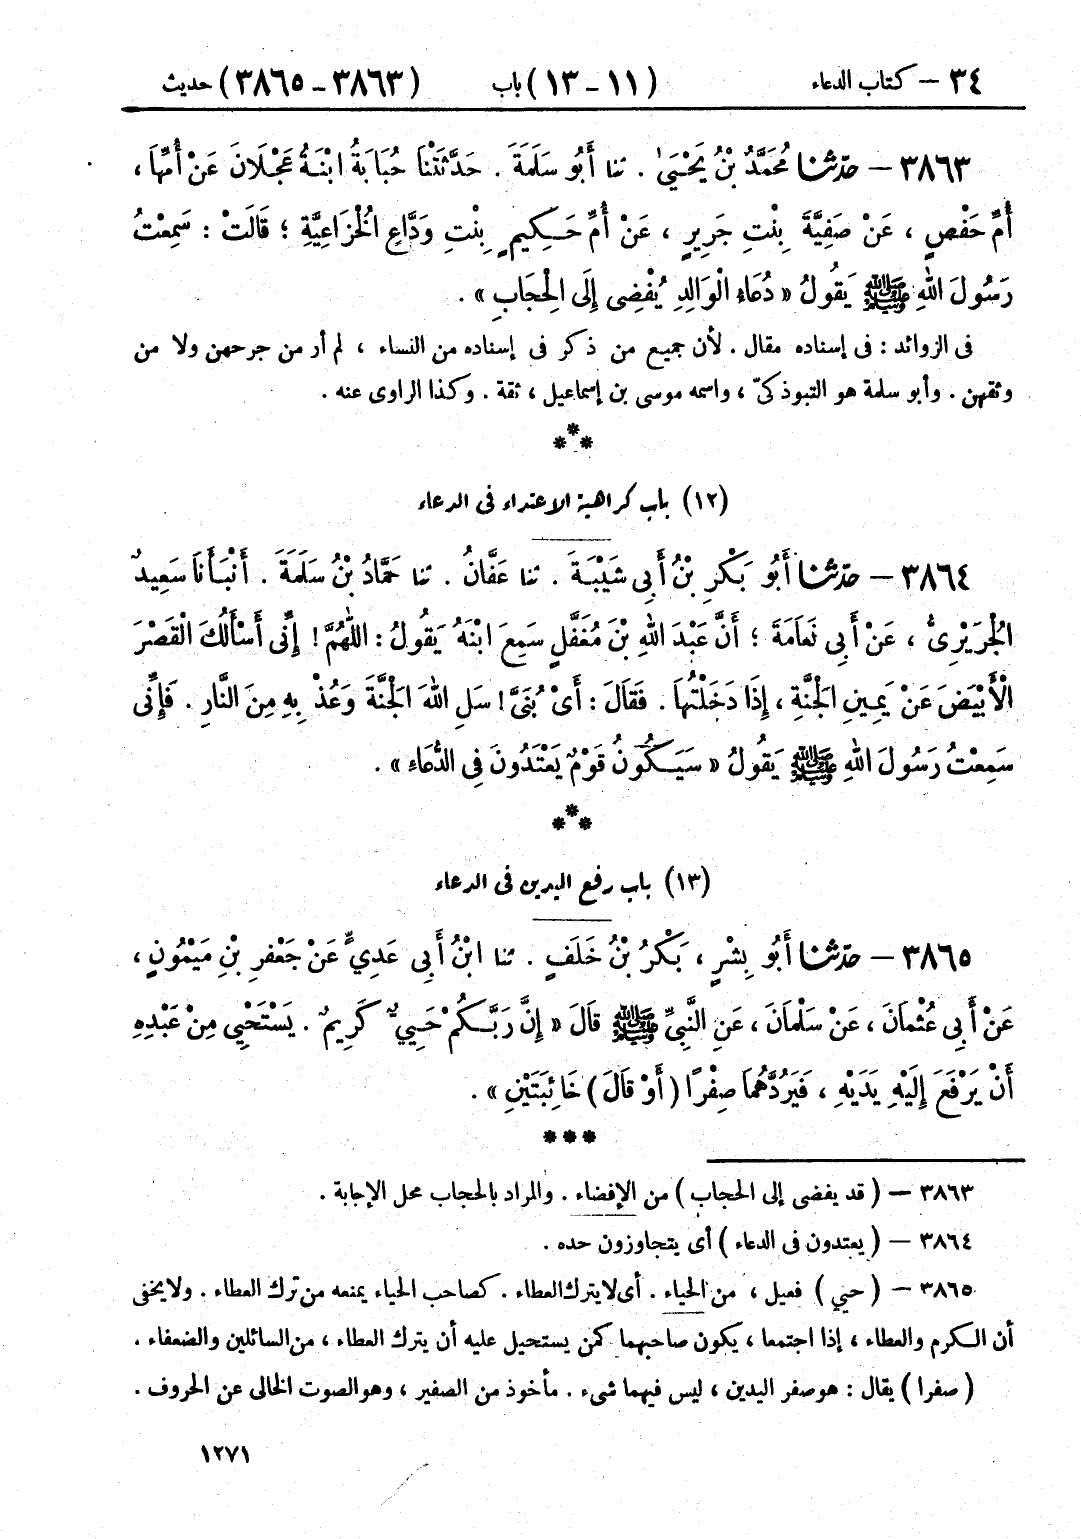 ٣٤ — كتاب الدعاء (١١ - ١٣) باب (٣٨٦٣ - ٣٨٦٥) حديث
٣٨٦٣ — حدّثنا مُحَمَّدُ بْنُ يَحْيَىٰ . ثنا أَبُو سَلَمَةَ . حَدَّثَتْنَا حُبَابَةُ ابْنَةُ عَجْلَانَ عَنْ أُمِّهَا ،
أُمِّ حَفْصٍ ، عَنْ صَفِيَّةَ بِنْتِ جَرِيرٍ ، عَنْ أُمِّ حَكِيمٍ بِنْتِ وَدَّاعٍ الْخُزَاعِيَّةِ ؛ قَالَتْ : سَمِعْتُ
رَسُولَ اللهِ ﷺ يَقُولُ « دُعَاءُ الْوَالِدِ يُفْضِى إِلَى الْحِجَابِ » .
فى الزوائد : فى إسناده مقال . لأن جميع من ذكر فى إسناده من النساء ، لم أر من جرحهن ولا من
وثقهن . وأبو سلمة هو التبوذكىّ ، واسمه موسى بن إسماعيل ، ثقة . وكذا الراوى عنه .
***
(١٢) باب كراهية الاعتداء فى الدعاء
٣٨٦٤ — حدّثنا أَبُو بَكْرِ بْنُ أَبِى شَيْبَةَ . ثنا عَفَّانُ . ثنا حَمَّادُ بْنُ سَلَمَةَ . أَنْبَأَنَا سَعِيدٌ
الْجُرَيْرِىُّ ، عَنْ أَبِى نَعَامَةَ ؛ أَنَّ عَبْدَ اللهِ بْنَ مُغَفَّلٍ سَمِعَ ابْنَهُ يَقُولُ : اللّٰهُمَّ ! إِنِّى أَسْأَلُكَ الْقَصْرَ
الْأَبْيَضَ عَنْ يَمِينِ الْجَنَّةِ ، إِذَا دَخَلْتُهَا . فَقَالَ : أَىْ بُنَىَّ ! سَلِ اللهَ الْجَنَّةَ وَعُذْ بِهِ مِنَ النَّارِ . فَإِنِّى
سَمِعْتُ رَسُولَ اللهِ ﷺ يَقُولُ « سَيَكُونُ قَوْمٌ يَعْتَدُونَ فِى الدُّعَاءِ » .
***
(١٣) باب رفع اليدين فى الدعاء
٣٨٦٥ — حدّثنا أَبُو بِشْرٍ ، بَكْرُ بْنُ خَلَفٍ . ثنا ابْنُ أَبِى عَدِيٍّ عَنْ جَعْفَرِ بْنِ مَيْمُونٍ ،
عَنْ أَبِى عُثْمَانَ ، عَنْ سَلْمَانَ ، عَنِ النَّبِيِّ ﷺ قَالَ « إِنَّ رَبَّكُمْ حَيِيٌّ كَرِيمٌ . يَسْتَحْيِي مِنْ عَبْدِهِ
أَنْ يَرْفَعَ إِلَيْهِ يَدَيْهِ ، فَيَرُدَّهُمَا صِفْرًا ( أَوْ قَالَ ) خَائِبَتَيْنِ » .
***
٣٨٦٣ — ( قد يفضى إلى الحجاب ) من الإفضاء . والمراد بالحجاب محل الإجابة .
٣٨٦٤ — ( يعتدون فى الدعاء ) أى يتجاوزون حده .
٣٨٦٥ — ( حيي ) فعيل ، من الحياء . أى لا يترك العطاء . كصاحب الحياء يمنعه من ترك العطاء . ولا يخفى
أن الكرم والعطاء ، إذا اجتمعا ، يكون صاحبهما كمن يستحيل عليه أن يترك العطاء ، من السائلين والضعفاء .
( صفرا ) يقال : هو صفر اليدين ، ليس فيهما شىء . مأخوذ من الصفير ، وهو الصوت الخالى عن الحروف .
١٢٧١